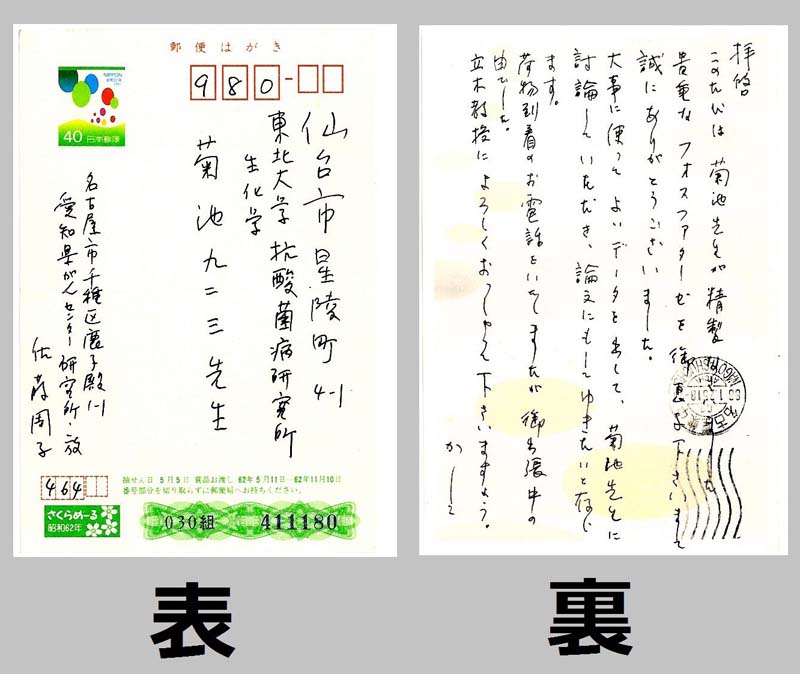 郵便はがき
NIPPON
40 日本郵便
980-
仙台市星陵町4-1
東北大学 抗酸菌病研究所
生化学
菊池九二三先生
名古屋市千種区鹿子殿1-1
愛知県がんセンター研究所・放
佐藤周子
抽せん日 5月5日 賞品お渡し 62年5月11日―62年11月10日
番号部分を切り取らずに郵便局へお持ちください。
464
さくらめーる
昭和62年
030組 411180
拝啓
このたびは 菊池先生が精製
貴重な フォスファターゼを 御恵与下さいまして
誠にありがとうございました。
大事に使って よいデータを出して、菊池先生に
討論していただき、論文にもしてゆきたいと存じ
ます。
荷物到着のお電話をいたしましたが 御出張中の
由でした。
立木教授に よろしくおっしゃって下さいますよう。
かしこ
表
裏